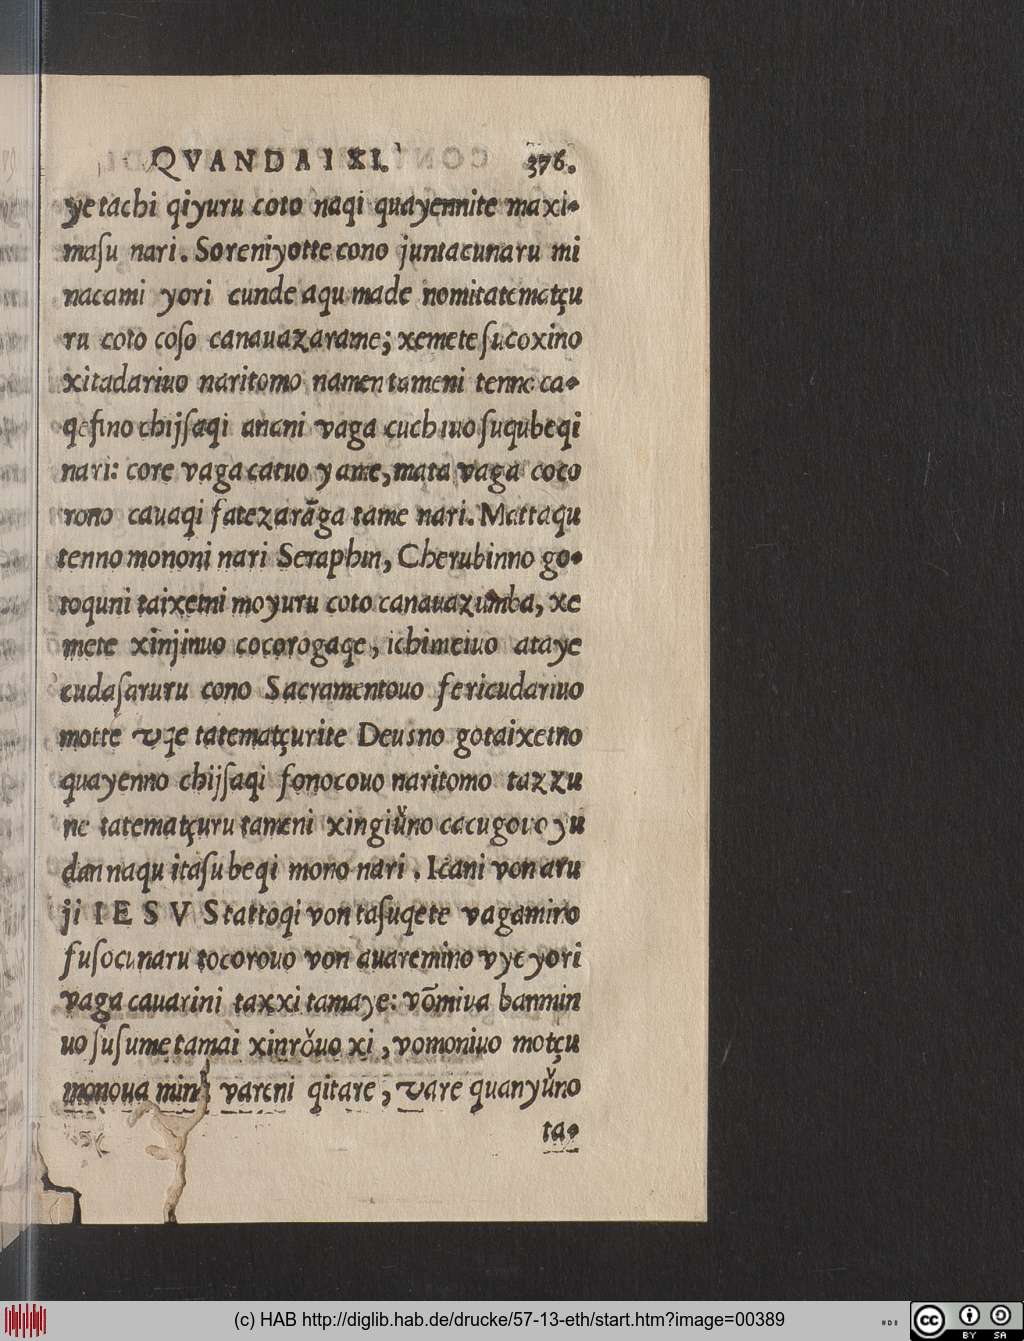 QVANDAI XI. 376.
ye tachi qiyuru coto naqi quayennite maxi-
maſu nari. Soreniyotte cono juntacunaru mi
nacami yori cunde aqu made nomitatematçu
ru coto coſo canauazarame; xemete ſucoxino
xitadariuo naritomo namen tameni tenno ca-
qefino chijſaqi anani vaga cuchiuo ſuqubeqi
nari: core vaga catuo yame, mata vaga coco
rono cauaqi fatezarāga tame nari. Mattaqu
tenno mononi nari Seraphin, Cherubinno go-
toquni taixetni moyuru coto canauazumba, xe
mete xinjinuo cocorogaqe, ichimeiuo ataye
cudaſaruru cono Sacramentouo fericudariuo
motte vqe tatematçurite Deusno gotaixetno
quayenno chijſaqi fonocouo naritomo tazzu
ne tatematçuru tameni xingiǔno cacugouo yu
dan naqu itaſubeqi mono nari. Icani von aru
ji IESV Stattoqi von taſuqete vagamino
fuſocunaru tocorouo von auaremino vye yori
vaga cauarini taxxi tamaye: vōmiva banmin
uo ſuſume tamai xinrǒuo xi, vomoniuo motçu
monoua mina vareni qitare, vare quanyǔno
ta-
(c) HAB http://diglib.hab.de/drucke/57-13-eth/start.htm?image=00389
cc BY SA